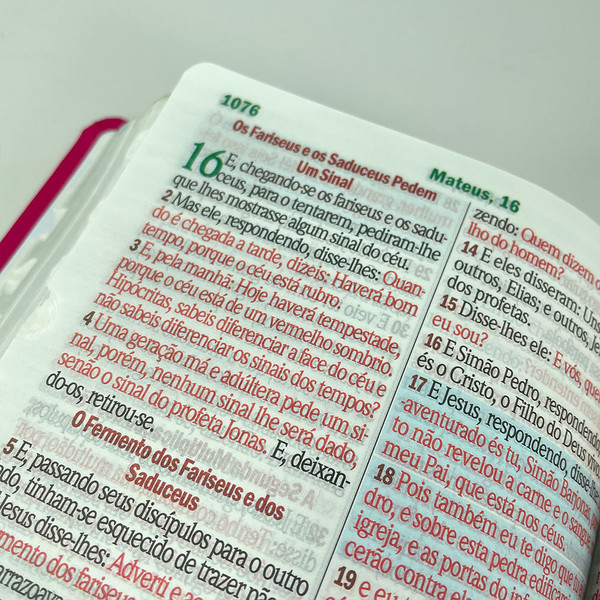 1076
Mateus, 16
Os Fariseus e os Saduceus Pedem
Um Sinal
16 E, chegando-se os fariseus e os sadu-
ceus, para o tentarem, pediram-lhe
que lhes mostrasse algum sinal do céu.
2 Mas ele, respondendo, disse-lhes: Quan-
do é chegada a tarde, dizeis: Haverá bom
tempo, porque o céu está rubro.
3 E, pela manhã: Hoje haverá tempestade,
porque o céu está de um vermelho sombrio.
Hipócritas, sabeis diferenciar a face do céu e
não sabeis diferenciar os sinais dos tempos?
4 Uma geração má e adúltera pede um si-
nal, porém, nenhum sinal lhe será dado,
senão o sinal do profeta Jonas. E, deixan-
do-os, retirou-se.
O Fermento dos Fariseus e dos
Saduceus
5 E, passando seus discípulos para o outro
tinham-se esquecido de trazer
Jesus disse-lhes: Adverti e
mento dos fariseus
zendo: Quem dizem
lho do homem?
14 E eles disseram: Uns
outros, Elias; e outros,
dos profetas.
15 Disse-lhes ele: E vós,
eu sou?
16 E Simão Pedro, respondendo
és o Cristo, o Filho do Deus
17 E Jesus, respondendo,
aventurado és tu, Simão
to não revelou a carne e o
meu Pai, que está nos céus.
18 Pois também eu te digo que
dro, e sobre esta pedra
igreja, e as portas do
cerão contra
19 e eu